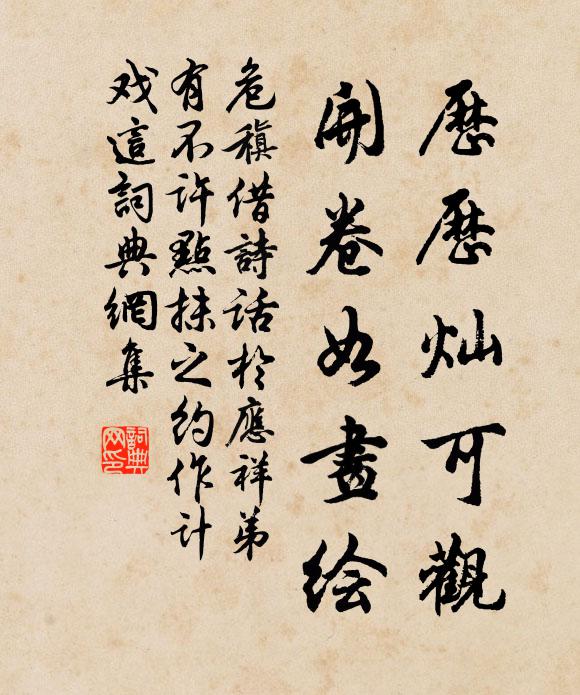 歷歷灿可觀
開卷如畫绘
危稹借詩話於應祥弟
有不许點抹之约作计
戏這詞典網集
詞典
网印